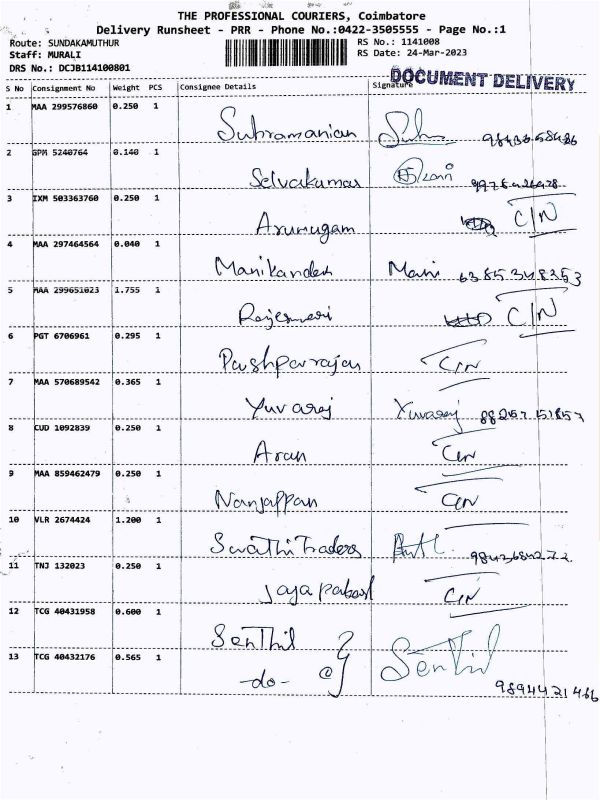 THE PROFESSIONAL COURIERS, Coimbatore
Delivery Runsheet - PRR - Phone No.:0422-3505555 - Page No.:1
Route: SUNDAKAMUTHUR RS No.: 1141008
Staff: MURALI RS Date: 24-Mar-2023
DRS No.: DCJB114100801
DOCUMENT DELIVERY
S No Consignment No Weight PCS Consignee Details Signature
1 MAA 299576860 0.250 1
Subramanian
2 GPM 5240764 0.140 1
Selvakumar
3 IXM 503363760 0.250 1
Arumugam C/N
4 MAA 297464564 0.040 1
Manikanden Mani 6385348253
5 MAA 299651023 1.755 1
Rajesweri C/N
6 PGT 6706961 0.295 1
Pushparajan C/N
7 MAA 570689542 0.365 1
Yuvaraj Yuvaraj
8 CUD 1092839 0.250 1
Arun C/N
9 MAA 859462479 0.250 1
Nanjappan C/N
10 VLR 2674424 1.200 1
Swathi Traders 9842684272
11 TNJ 132023 0.250 1
C/N
12 TCG 40431958 0.600 1
Senthil
13 TCG 40432176 0.565 1
-do- Senthil
9894421466